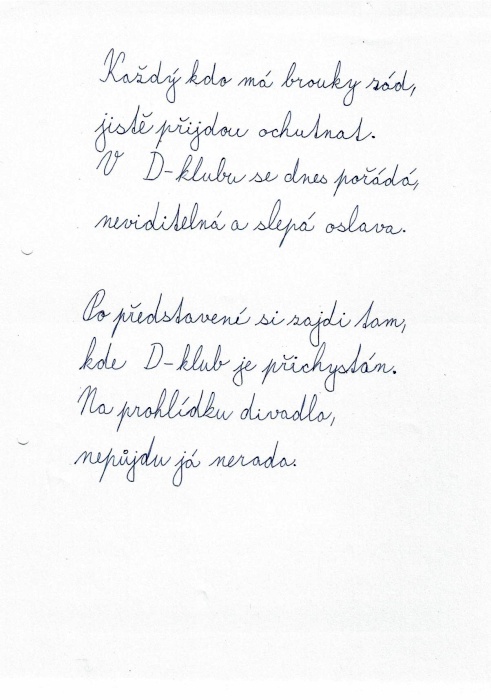 Každý kdo má brouky rád,
jistě přijdou ochutnat.
V D-klubu se dnes pořádá,
neviditelná a slepá oslava.
Po představení si zajdi tam,
kde D-klub je přichystán.
Na prohlídku divadla,
nepůjdu já nerada.